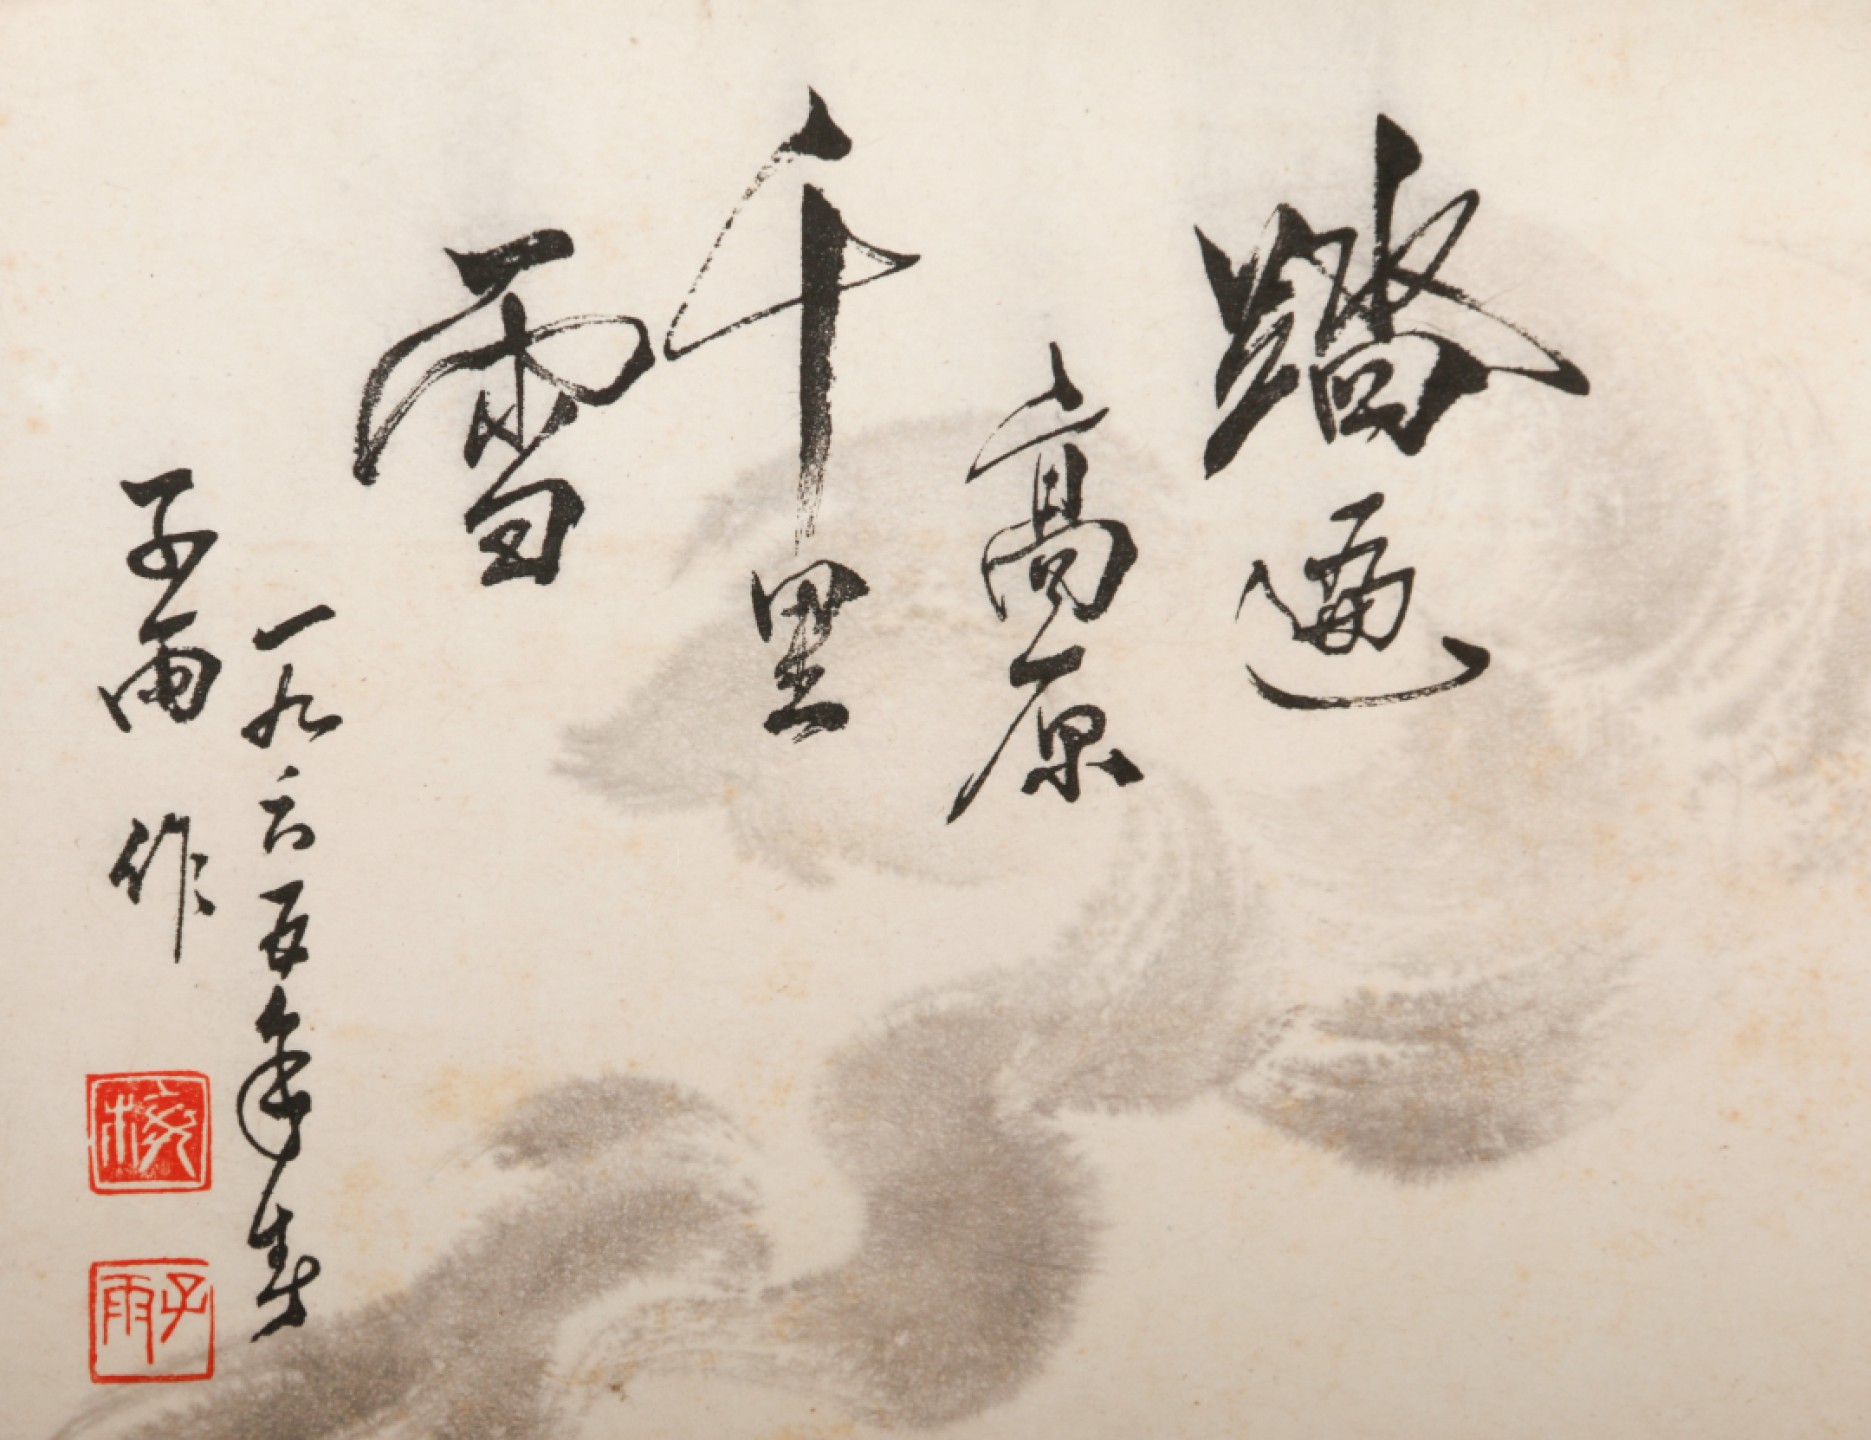 踏遍
高原
千里
雪
一九六五年春
子雨 作
子雨